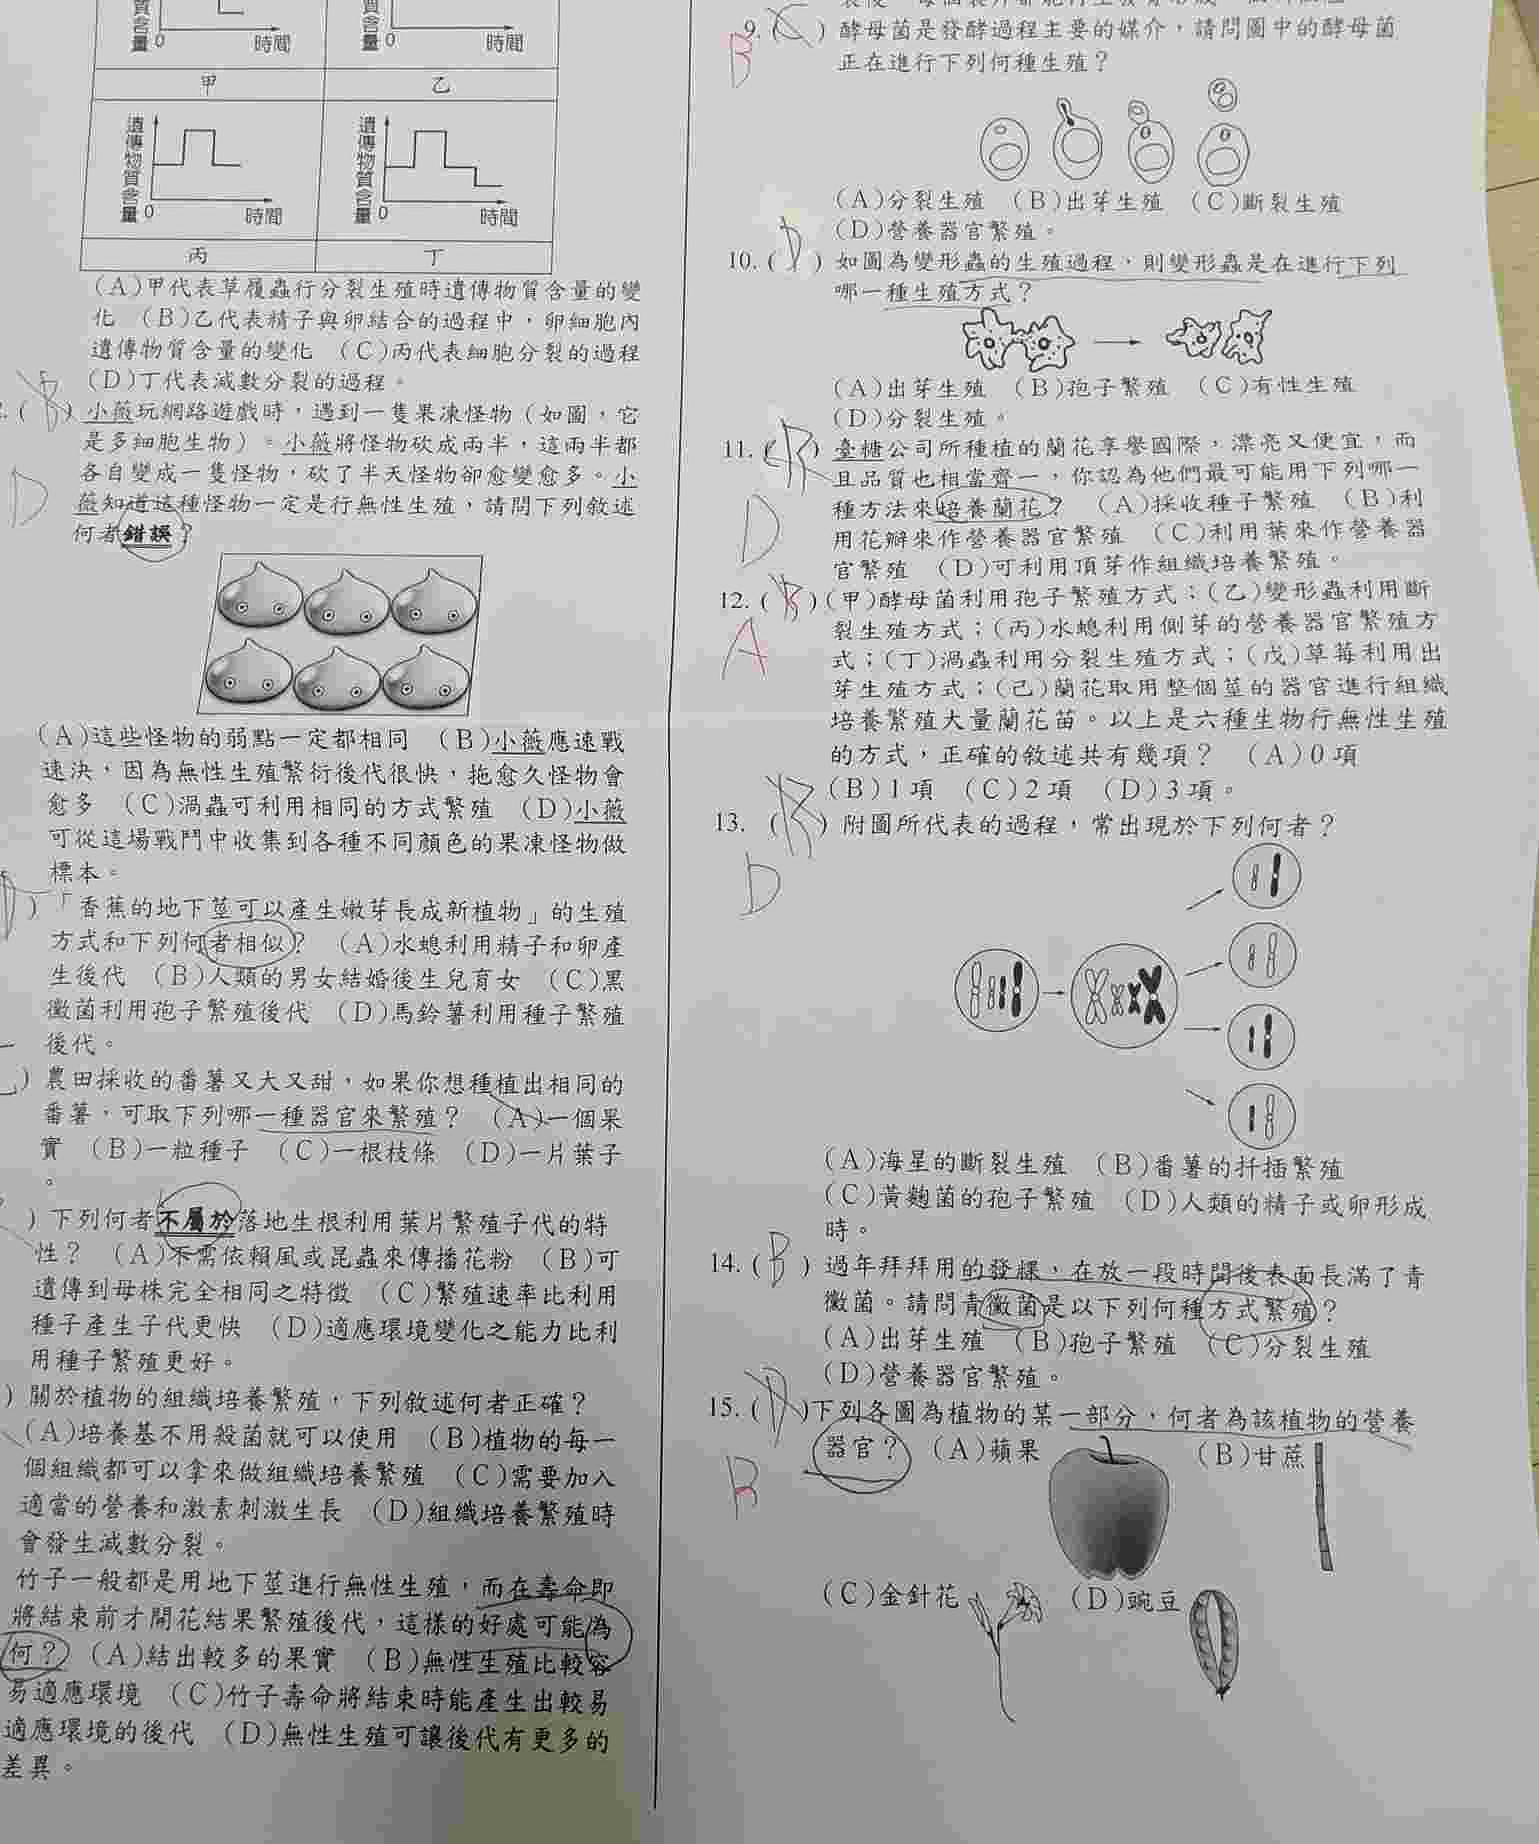 質含量
0
時間
質含量
0
時間
甲
乙
遺傳物質含量
0
時間
遺傳物質含量
0
時間
丙
丁
(A)甲代表草履蟲行分裂生殖時遺傳物質含量的變
化 (B)乙代表精子與卵結合的過程中,卵細胞內
遺傳物質含量的變化 (C)丙代表細胞分裂的過程
(D)丁代表減數分裂的過程。
( B ) 小薇玩網路遊戲時,遇到一隻果凍怪物(如圖,它
是多細胞生物)。小薇將怪物砍成兩半,這兩半都
各自變成一隻怪物,砍了半天怪物卻愈變愈多。小
D
薇知道這種怪物一定是行無性生殖,請問下列敘述
何者錯誤?
(A)這些怪物的弱點一定都相同 (B)小薇應速戰
速決,因為無性生殖繁衍後代很快,拖愈久怪物會
愈多 (C)渦蟲可利用相同的方式繁殖 (D)小薇
可從這場戰鬥中收集到各種不同顏色的果凍怪物做
標本。
)「香蕉的地下莖可以產生嫩芽長成新植物」的生殖
方式和下列何者相似? (A)水螅利用精子和卵產
生後代 (B)人類的男女結婚後生兒育女 (C)黑
黴菌利用孢子繁殖後代 (D)馬鈴薯利用種子繁殖
後代。
) 農田採收的番薯又大又甜,如果你想種植出相同的
番薯,可取下列哪一種器官來繁殖? (A)一個果
實 (B)一粒種子 (C)一根枝條 (D)一片葉子
。
) 下列何者不屬於落地生根利用葉片繁殖子代的特
性? (A)不需依賴風或昆蟲來傳播花粉 (B)可
遺傳到母株完全相同之特徵 (C)繁殖速率比利用
種子產生子代更快 (D)適應環境變化之能力比利
用種子繁殖更好。
) 關於植物的組織培養繁殖,下列敘述何者正確?
(A)培養基不用殺菌就可以使用 (B)植物的每一
個組織都可以拿來做組織培養繁殖 (C)需要加入
適當的營養和激素刺激生長 (D)組織培養繁殖時
會發生減數分裂。
竹子一般都是用地下莖進行無性生殖,而在壽命即
將結束前才開花結果繁殖後代,這樣的好處可能為
何? (A)結出較多的果實 (B)無性生殖比較容
易適應環境 (C)竹子壽命將結束時能產生出較易
適應環境的後代 (D)無性生殖可讓後代有更多的
差異。
9. ( C ) 酵母菌是發酵過程主要的媒介,請問圖中的酵母菌
B
正在進行下列何種生殖?
(A)分裂生殖 (B)出芽生殖 (C)斷裂生殖
(D)營養器官繁殖。
10. ( D ) 如圖為變形蟲的生殖過程,則變形蟲是在進行下列
哪一種生殖方式?
(A)出芽生殖 (B)孢子繁殖 (C)有性生殖
(D)分裂生殖。
11. ( B ) 臺糖公司所種植的蘭花享譽國際,漂亮又便宜,而
且品質也相當齊一,你認為他們最可能用下列哪一
種方法來培養蘭花? (A)採收種子繁殖 (B)利
D
用花瓣來作營養器官繁殖 (C)利用葉來作營養器
官繁殖 (D)可利用頂芽作組織培養繁殖。
12. ( B ) (甲)酵母菌利用孢子繁殖方式;(乙)變形蟲利用斷
裂生殖方式;(丙)水螅利用側芽的營養器官繁殖方
A
式;(丁)渦蟲利用分裂生殖方式;(戊)草莓利用出
芽生殖方式;(己)蘭花取用整個莖的器官進行組織
培養繁殖大量蘭花苗。以上是六種生物行無性生殖
的方式,正確的敘述共有幾項? (A)0項
(B)1項 (C)2項 (D)3項。
13. ( B ) 附圖所代表的過程,常出現於下列何者?
D
(A)海星的斷裂生殖 (B)番薯的扦插繁殖
(C)黃麴菌的孢子繁殖 (D)人類的精子或卵形成
時。
14. ( B ) 過年拜拜用的發粿,在放一段時間後表面長滿了青
黴菌。請問青黴菌是以下列何種方式繁殖?
(A)出芽生殖 (B)孢子繁殖 (C)分裂生殖
(D)營養器官繁殖。
15. ( D )下列各圖為植物的某一部分,何者為該植物的營養
器官? (A)蘋果 (B)甘蔗
B
(C)金針花 (D)豌豆